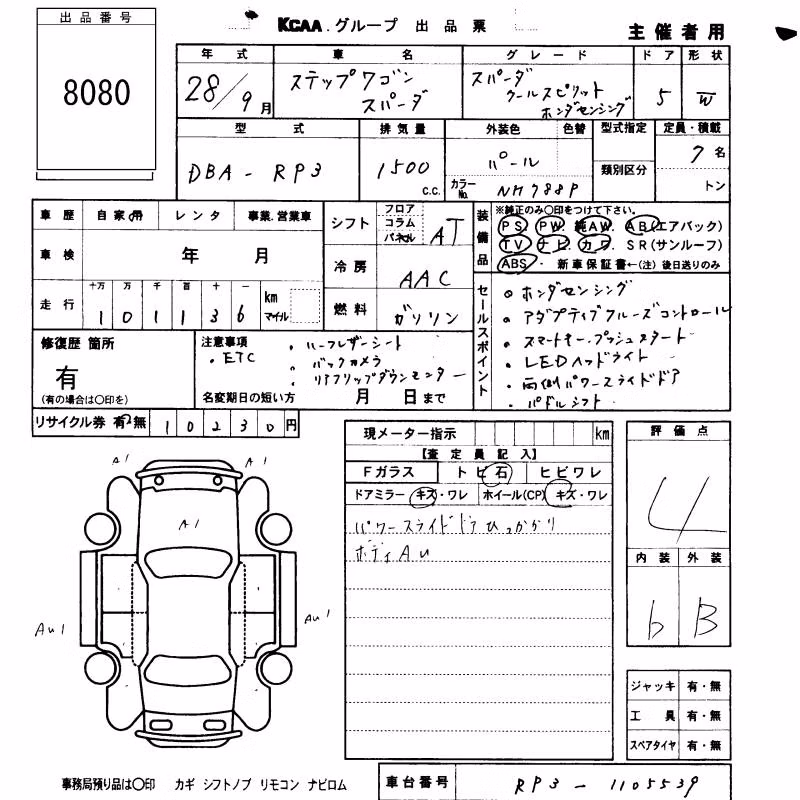 出品番号
8080
KCAA.グループ 出品票
主催者用
年式 車名 グレード ドア 形状
28/9月
ステップワゴン
スパーダ
スパーダ
クールスピリット
ホンダセンシング
5 W
型式 排気量 外装色 色替 型式指定 定員・積載
DBA-RP3
1500
c.c.
パール
カラーNo. NH788P
類別区分
7名
トン
車歴 自家用 レンタ 事業.営業車
車検 年 月
走行 十万 万 千 百 十 一 km マイル
101136
シフト フロア コラム パネル AT
冷房 AAC
燃料 ガソリン
装備品
※純正のみ〇印をつけて下さい。
PS. PW. 純AW. AB(エアバック)
TV ナビ カワ SR(サンルーフ)
ABS. 新車保証書←(注)後日送りのみ
セールスポイント
ホンダセンシング
アダプティブクルーズコントロール
スマートキー.プッシュスタート
LEDヘッドライト
両側パワースライドドア
パドルシフト
修復歴 箇所
有
(有の場合は〇印を)
注意事項
・ETC
・ハーフレザーシート
・バックカメラ
・リアフリップダウンモニター
名変期日の短い方 月 日まで
リサイクル券 有・無 10230円
現メーター指示 km
【査定員記入】
Fガラス トビ石 ヒビワレ
ドアミラー キズ・ワレ ホイール(CP) キズ・ワレ
パワースライドドアひっかかり
ボディAu
評価点
4
内装 外装
b B
A1 A1
A1
Au1 Au1
ジャッキ 有・無
工具 有・無
スペアタイヤ 有・無
事務局預り品は〇印 カギ シフトノブ リモコン ナビロム
車台番号 RP3-1105539